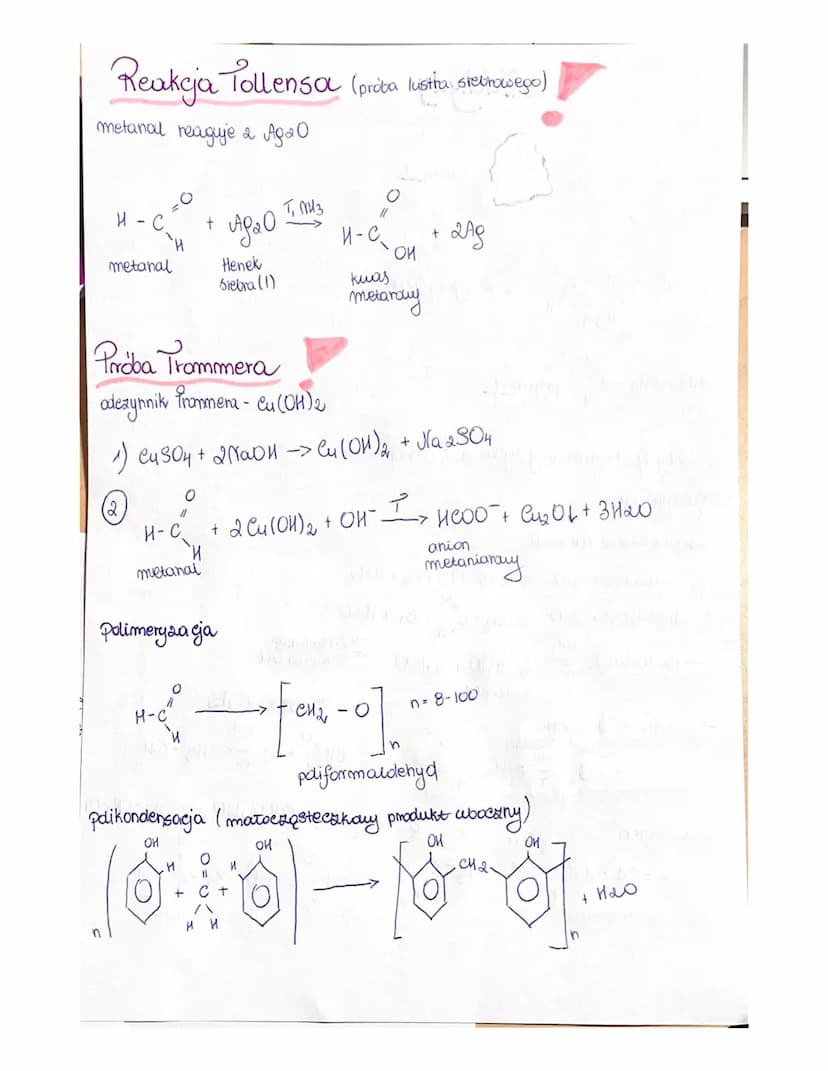 Reakcja Tollensa (próba lustra srebrowego)
metanal reaguje z Ag2O
H - C =O H + Ag2O T, NH3 → H-C =O OH + 2Ag
metanal Tlenek srebra (I) kwas metanowy
Próba Trommera
odczynnik Trommera - Cu(OH)2
1) CuSO4 + 2NaOH -> Cu(OH)2 + Na2SO4
2 H-C =O H + 2Cu(OH)2 + OH- T → HCOO- + Cu2O↓ + 3H2O
metanal anion metanianowy
Polimeryzacja
H-C =O H → [CH2 - O]n n = 8-100
poliformaldehyd
polikondensacja (małocząsteczkowy produkt uboczny)
n ( OH H + O = C H H + H OH ) → [ OH CH2 OH ]n + H2O